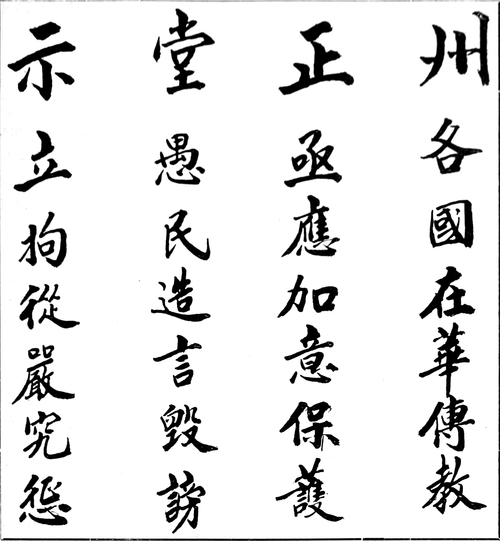 州正堂示
各國在華傳教
亟應加意保護
愚民造言毀謗
立拘從嚴究惩